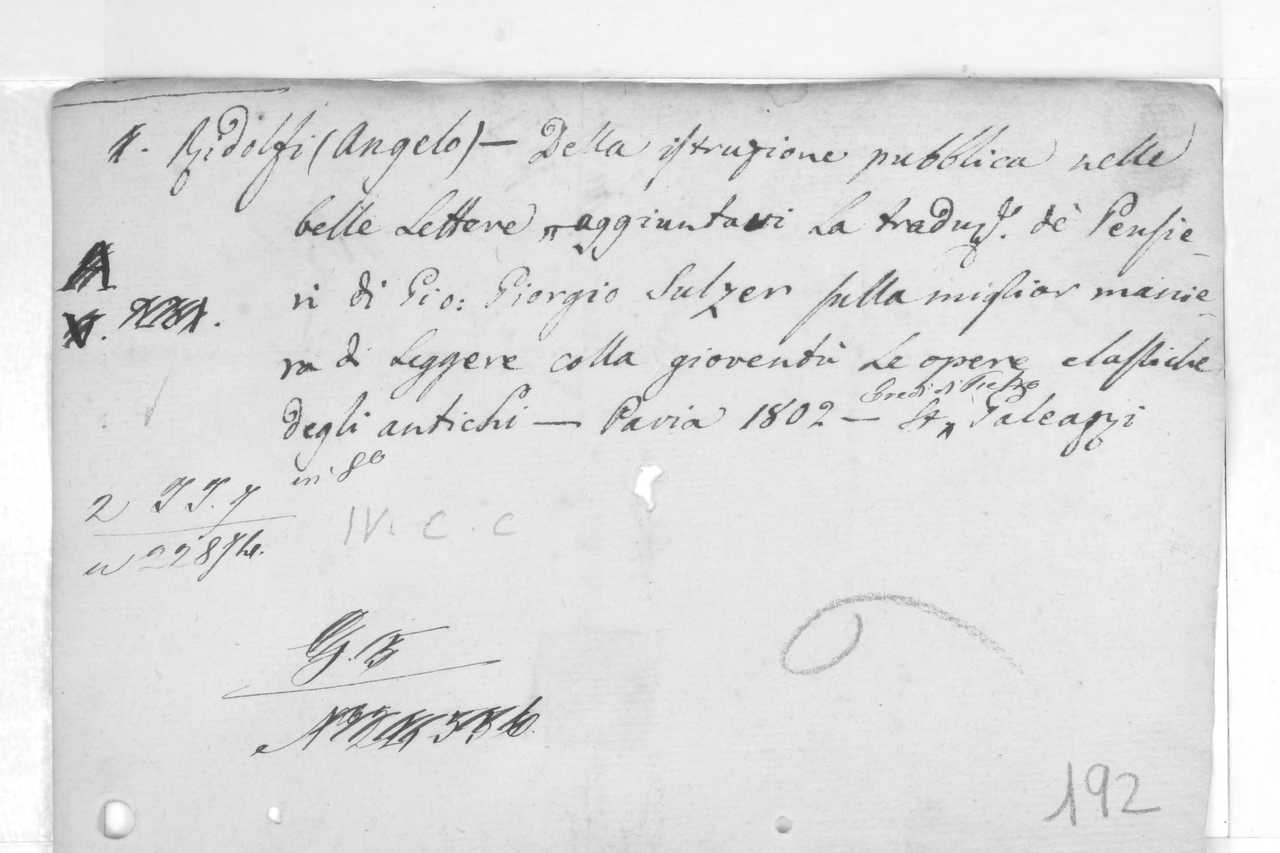 Ridolfi (Angelo) — Della istruzione pubblica nelle
belle Lettere aggiuntavi La traduz.e de' Pensie-
ri di Gio: Giorgio Sulzer sulla miglior manie-
ra di Leggere colla gioventù Le opere classiche
degli antichi — Pavia 1802 — St. Eredi di Pietro Galeazzi
in 8º
2
IV. C. C
G.
192